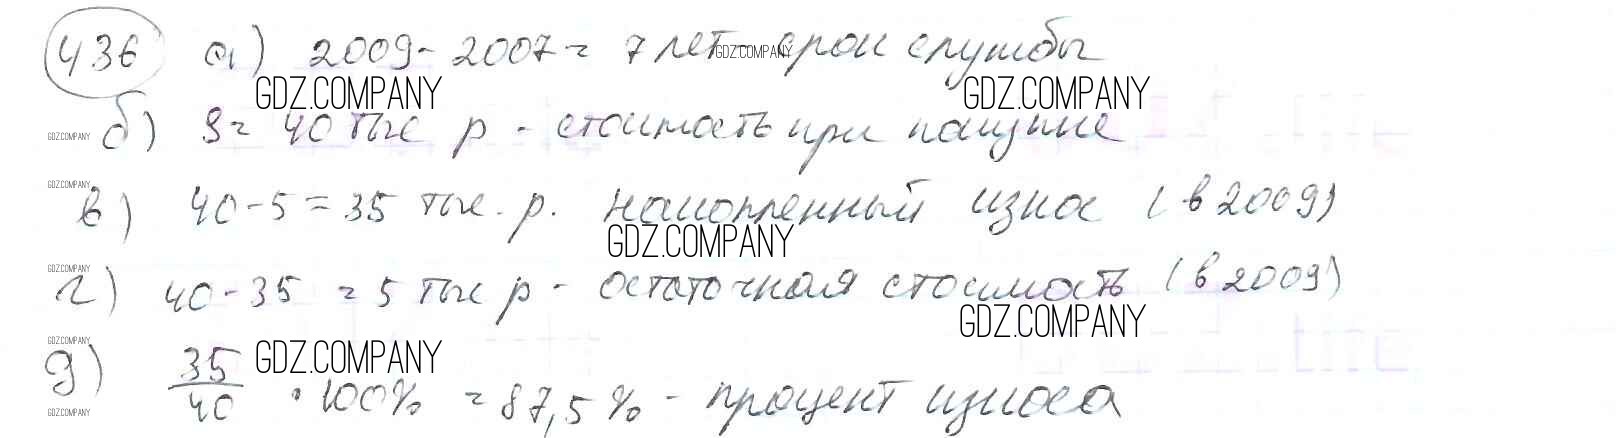 436 а) 2009 - 2007 = 7 лет - срок службы
GDZ.COMPANY
GDZ.COMPANY GDZ.COMPANY
GDZ.COMPANY б) S = 40 тыс р - стоимость при покупке
GDZ.COMPANY
в) 40 - 5 = 35 тыс. р. накопленный износ (в 2009)
GDZ.COMPANY
GDZ.COMPANY
г) 40 - 35 = 5 тыс р - остаточная стоимость (в 2009)
GDZ.COMPANY
GDZ.COMPANY
GDZ.COMPANY
д) 35/40 · 100% = 87,5 % - процент износа
GDZ.COMPANY